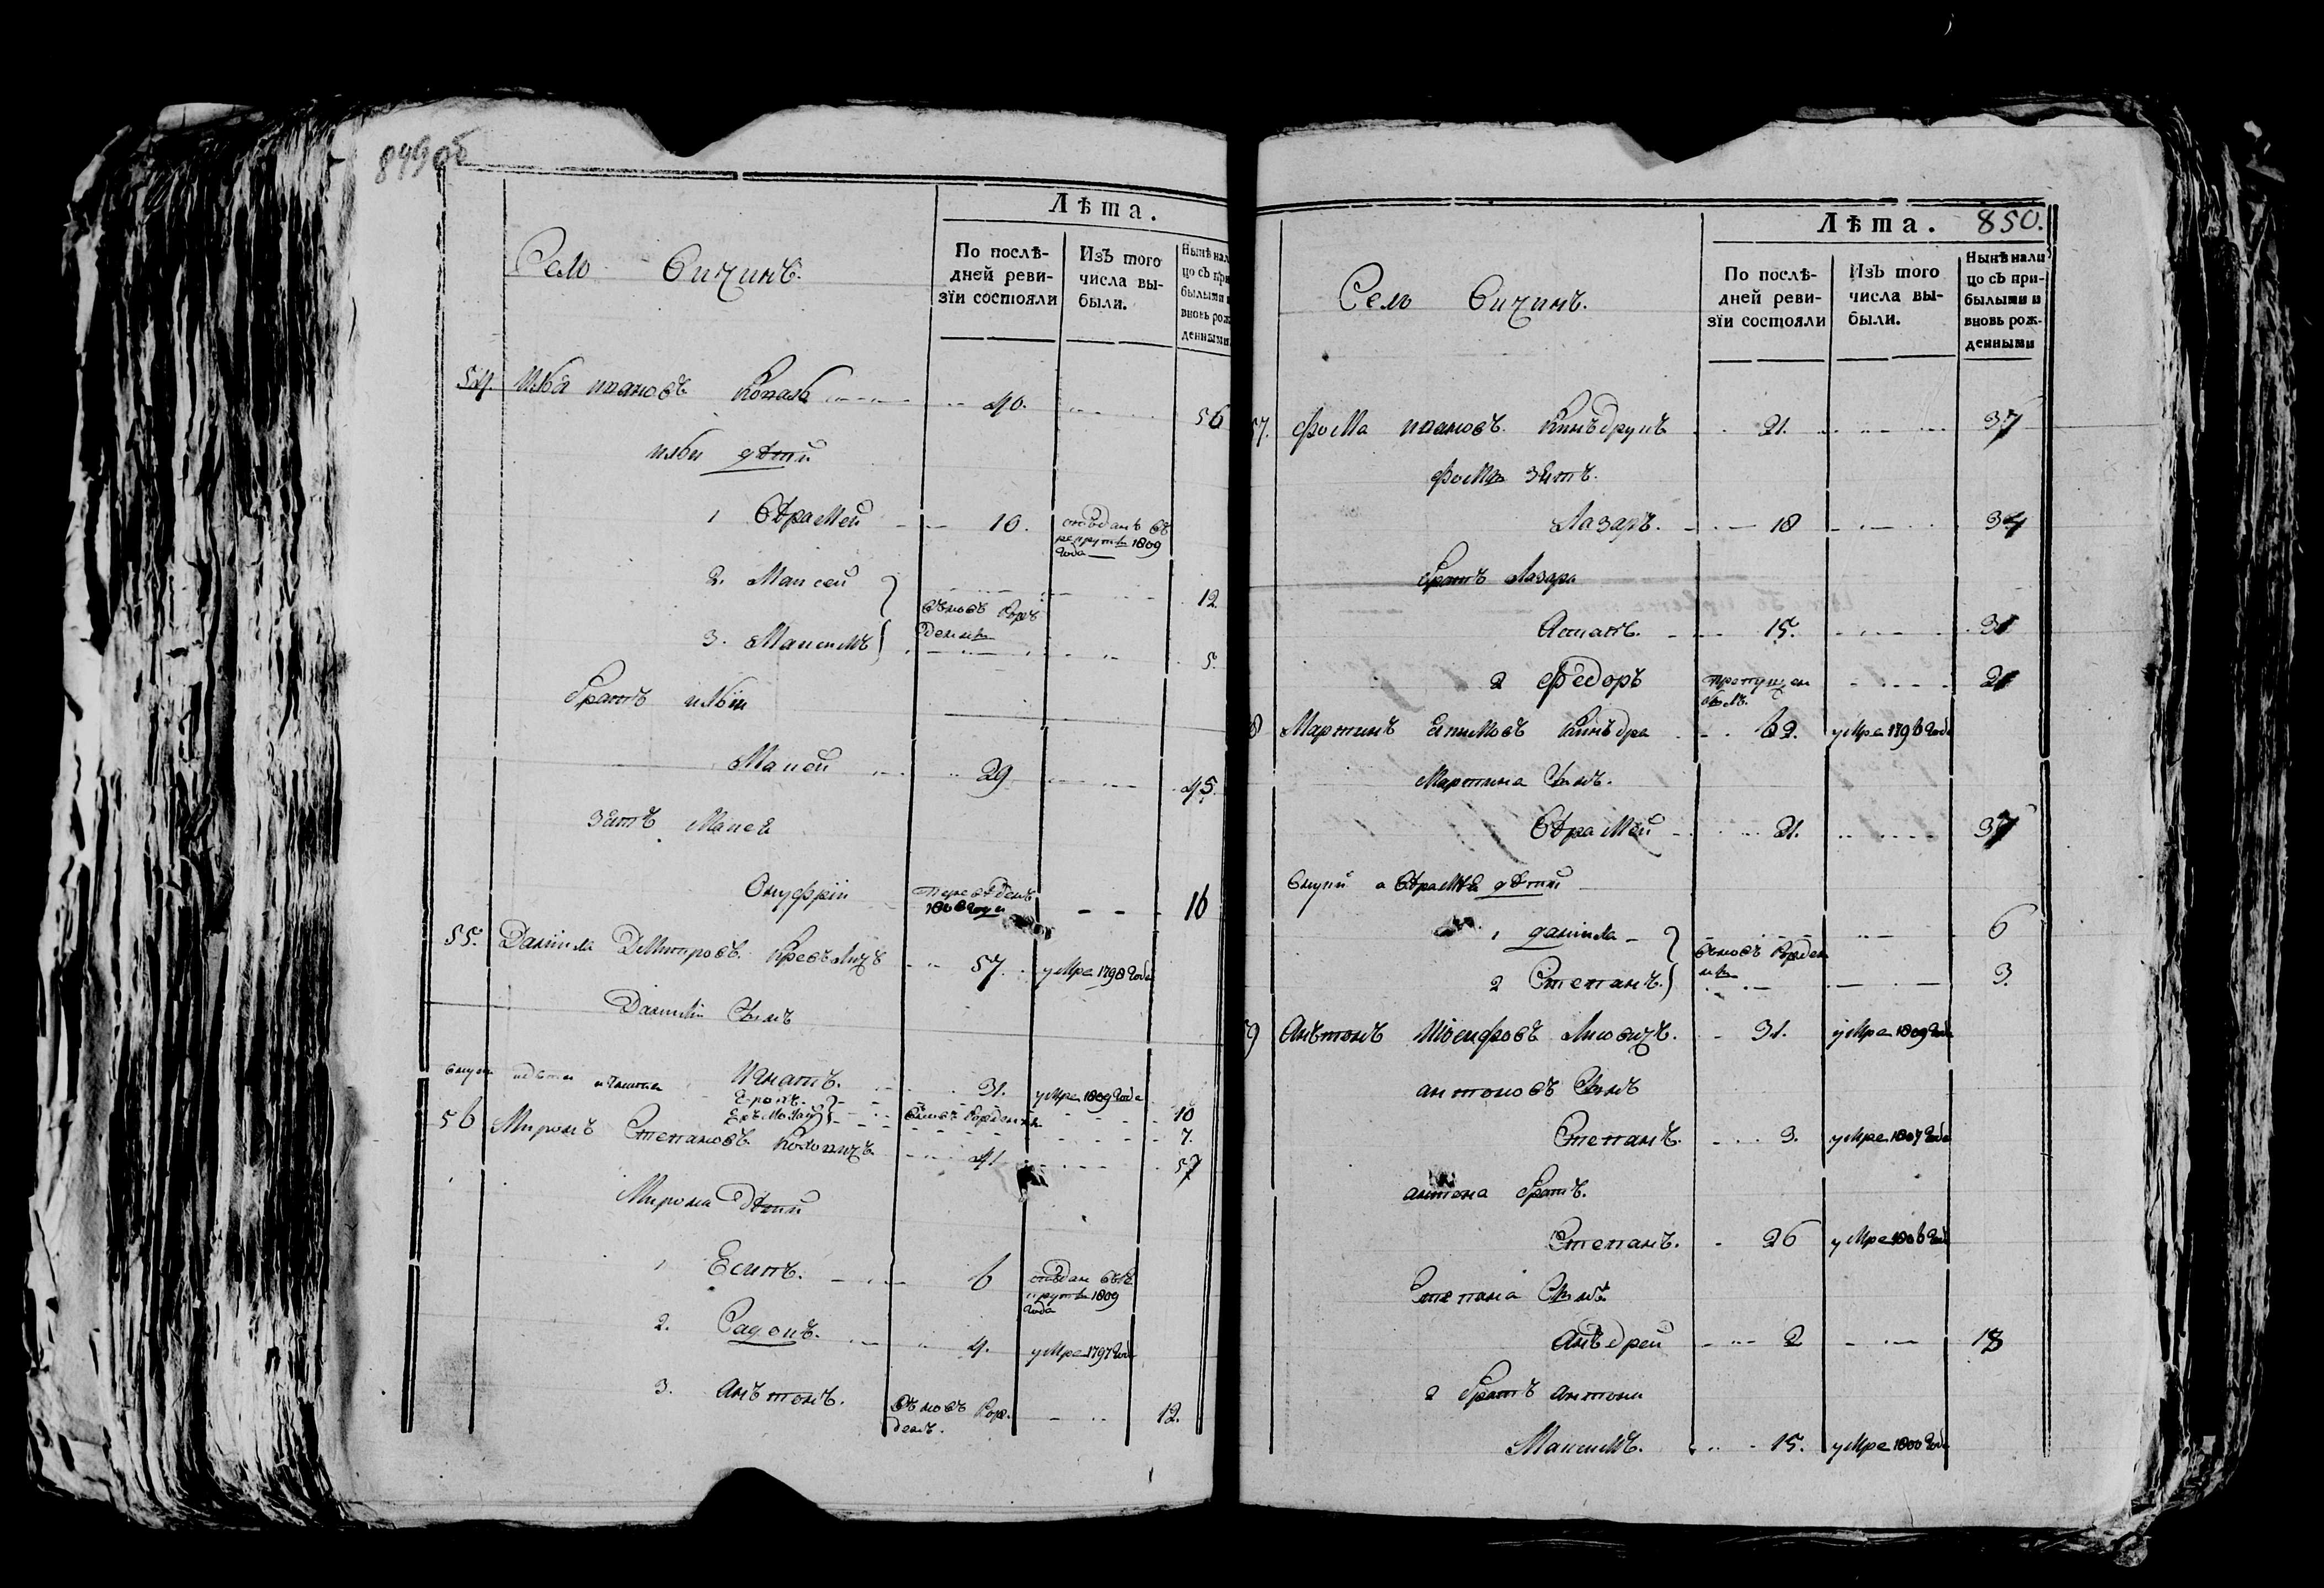 849об
Лѣта.
Село Сичинъ.
По послѣ-
дней реви-
зїи состояли
Изъ того
числа вы-
были.
Нынѣ нали
цо съ при
былыми и
вновь рож
денными
54. Илья Ивановъ Коваль 40. 56
Ильи дѣти
1 Ефрамей 10. отъданъ въ
рекруты 1809
года
2. Мансей 12.
вновь рож
дены
3. Максимъ 5.
братъ Ильи
Макей 29 45.
зять Макея
Онуфрій переведенъ
1808 года 16
55. Данила Дмитровъ 57. умре 1798 года
Данили сынъ
Игнатъ. 31. умре 1809 года
внуки вновь рождены 10
7.
56 Миронъ Степановъ 41 57
Мирона дѣти
1 Есипъ. 6 отъдан въ ре
круты 1809
года
2. 4. умре 1797 года
3. Анътонъ. вновь рож.
денъ. 12.
Лѣта. 850.
Село Сичинъ.
По послѣ-
дней реви-
зїи состояли
Изъ того
числа вы-
были.
Нынѣ нали
цо съ при-
былыми и
вновь рож-
денными
57. Фома Ивановъ 21. 37
Фомы зять.
Лазарь. 18 34
братъ Лазаря
15. 31
2 Федоръ пропущен
былъ. 21
8 Мартинъ Екимовъ 62. умре 1796 года
Мартина сынъ.
Ефрамей 21. 37
Внуки а Ефрамея дѣти
1 Данила 6
вновь рожден
ны
2 Степанъ. 3.
9 Анътонъ Иосифовъ 31. умре 1809 года
Антоновъ сынъ
Степанъ. 3. умре 1807 года
Антона братъ.
Степанъ. 26 умре 1806 года
Степана сынъ
Анъдрей 2 18
2 братъ Антона
Максимъ. 15. умре 1800 года